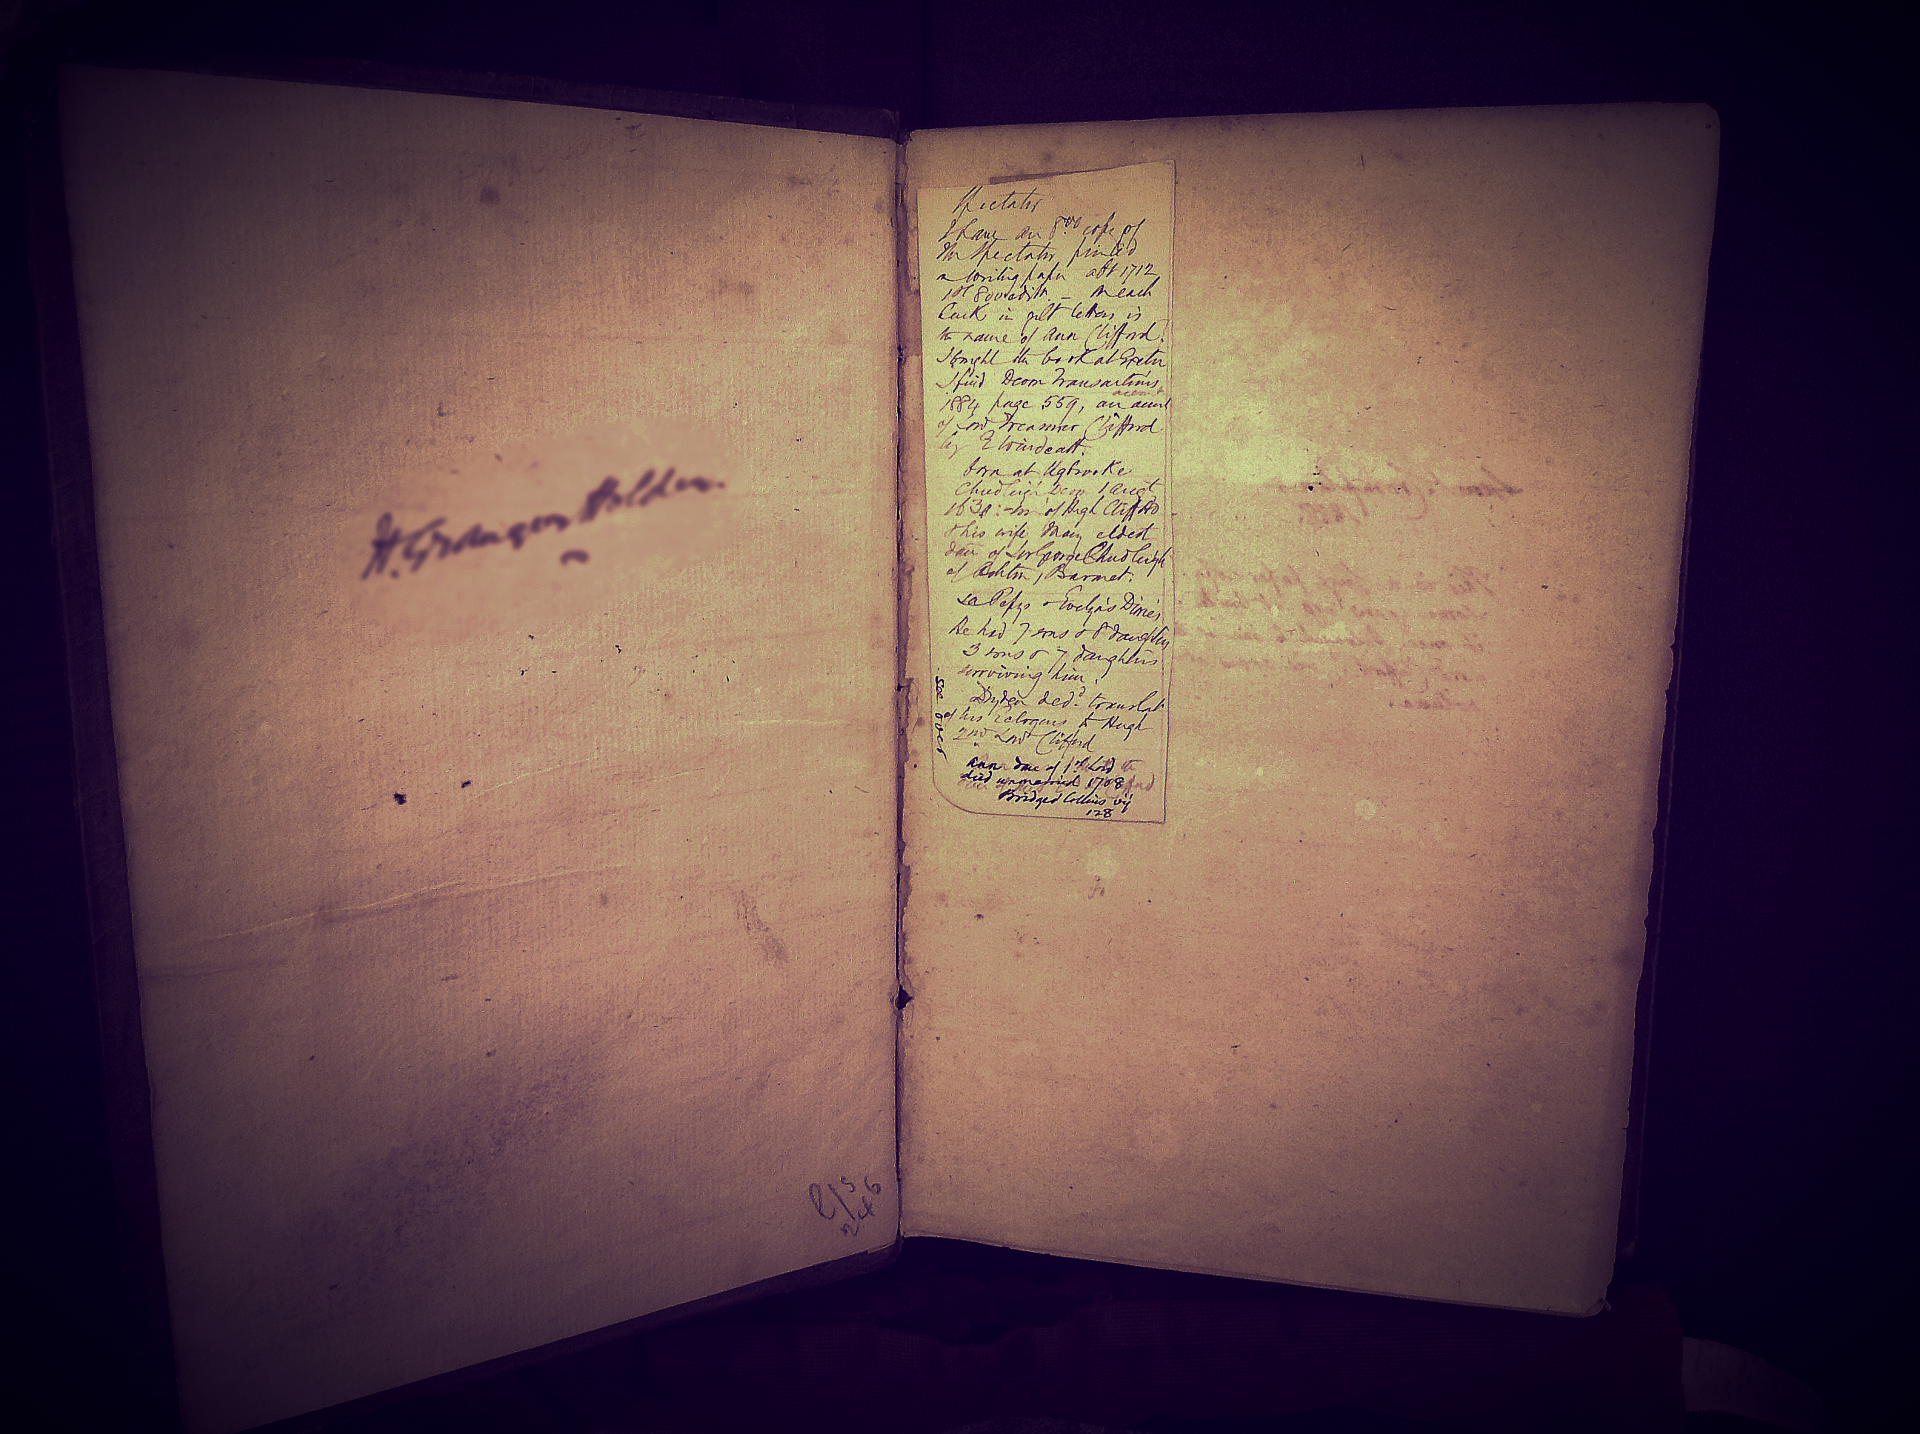 H. Granger Holden.
2/5
246
Spectator
I have an 8vo copy of
the Spectator printed
on writing paper abt 1712
1st 8vo edith. – On each
back in gilt letters is
the name of Ann Clifford.
I bought the book at Exeter
I find Devon Transactions
1884 page 559, an acent
of Lord Treasurer Clifford
by E Windeatt.
born at Ugbrooke
Chudleigh Devon 1 Augt
1630: son of Hugh Clifford
& his wife Mary eldest
datr of Sir George Chudleigh
of Ashton, Baronet.
See Pepys & Evelyn's Diaries
He had 7 sons & 8 daughters
3 sons & 7 daughters
surviving him.
Dryden dedd translat
of his Eclogues to Hugh
2nd Lord Clifford
Ann datr of 1st Lord
died unmarried 1708
Bridges Collins vij
128
See over